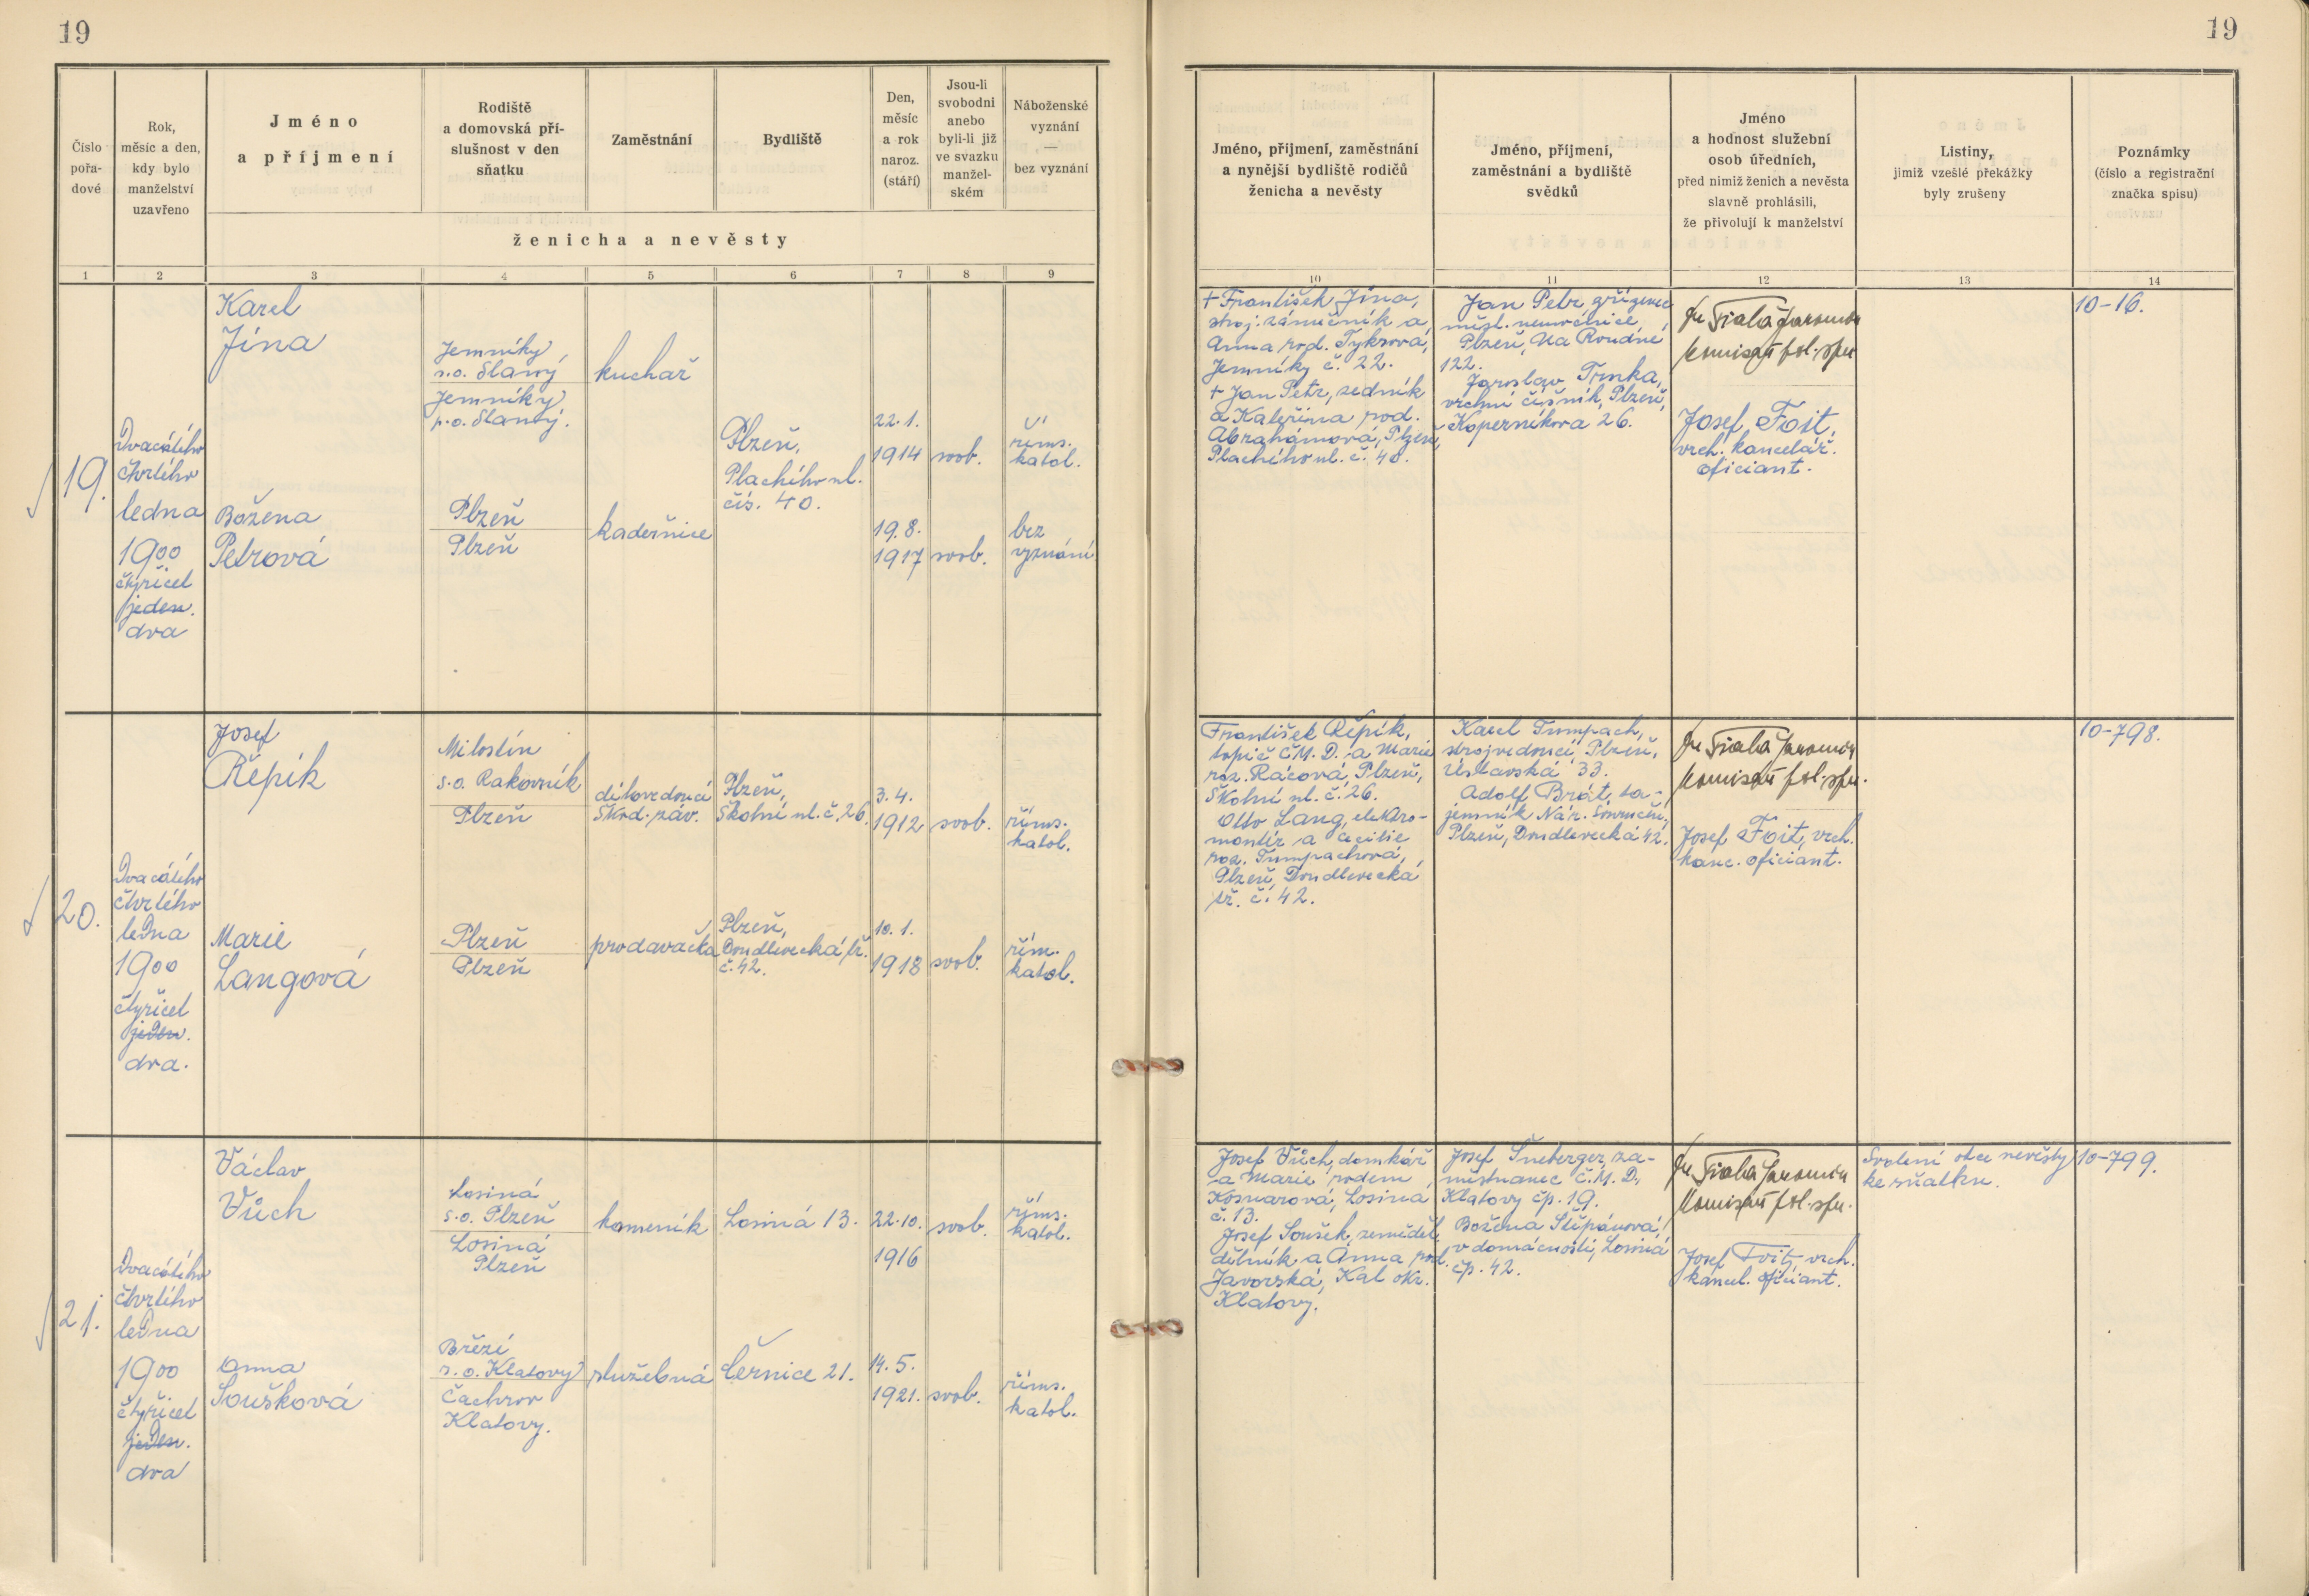 19
19
Číslo
pořa-
dové
Rok,
měsíc a den,
kdy bylo
manželství
uzavřeno
Jméno
a příjmení
Rodiště
a domovská pří-
slušnost v den
sňatku
Zaměstnání
Bydliště
Den,
měsíc
a rok
naroz.
(stáří)
Jsou-li
svobodni
anebo
byli-li již
ve svazku
manžel-
ském
Náboženské
vyznání
—
bez vyznání
ženicha a nevěsty
Jméno, příjmení, zaměstnání
a nynější bydliště rodičů
ženicha a nevěsty
Jméno, příjmení,
zaměstnání a bydliště
svědků
Jméno
a hodnost služební
osob úředních,
před nimiž ženich a nevěsta
slavně prohlásili,
že přivolují k manželství
Listiny,
jimiž vzešlé překážky
byly zrušeny
Poznámky
(číslo a registrační
značka spisu)
1 2 3 4 5 6 7 8 9
10 11 12 13 14
19.
Dvacátého
čtvrtého
ledna
1900
čtyřicet
jeden.
dva
Karel
Jína
Jemníky
s.o. Slaný
Jemníky
p.o. Slaný.
kuchař
Plzeň,
Plachého ul.
čís. 40.
22.1.
1914
svob.
říms.
katol.
Božena
Petrová
Plzeň
Plzeň
kadeřnice
19.8.
1917
svob.
bez
vyznání
+ František Jína,
stroj. zámečník a
Anna rod. Tyksová,
Jemníky č. 22.
+ Jan Petr, zedník
a Kateřina rod.
Abrahámová, Plzeň,
Plachého ul. č. 40.
Jan Petr, zřízenec
nemocnice,
Plzeň, Na Roudné
122.
Jaroslav Trnka,
vrchní číšník, Plzeň,
Koperníkova 26.
Fiala Jaromír
komisař pol. spr.
Josef Foit,
vrch. kancelář.
oficiant.
10-16.
20.
Dvacátého
čtvrtého
ledna
1900
čtyřicet
jeden.
dva.
Josef
Řepík
Milostín
s.o. Rakovník
Plzeň
dílovedoucí
Škod. záv.
Plzeň,
Školní ul. č. 26.
3.4.
1912
svob.
říms.
katol.
Marie
Langová
Plzeň
Plzeň
prodavačka
Plzeň,
Doudlevecká tř.
č. 42.
10.1.
1918
svob.
řím.
katol.
František Řepík,
topič ČM.D. a Marie
roz. Rácová, Plzeň,
Školní ul. č. 26.
Otto Lang, elektro-
montér a Cecilie
roz. Trumpachová,
Plzeň, Doudlevecká
tř. č. 42.
Karel Trumpach,
strojvedoucí, Plzeň,
Úslavská 33.
Adolf Brát, ta-
jemník Nár. Souručen.,
Plzeň, Doudlevecká 42.
Fiala Jaromír
komisař pol. spr.
Josef Foit, vrch.
kanc. oficiant.
10-798.
21.
Dvacátého
čtvrtého
ledna
1900
čtyřicet
jeden.
dva
Václav
Vůch
Losiná
s.o. Plzeň
Losiná
Plzeň
kameník
Losiná 13.
22.10.
1916
svob.
říms.
katol.
Anna
Soušková
Březí
s.o. Klatovy
Čachrov
Klatovy.
služebná
Černice 21.
14.5.
1921.
svob.
říms.
katol.
Josef Vůch, domkář
a Marie rodem
Kosnarová, Losina
č. 13.
Josef Soušek, zeměděl.
dělník a Anna rod.
Javorská, Kal okr.
Klatovy.
Josef Šneberger, za-
městnanec Č.M.D.,
Klatovy čp. 19.
Božena Štěpánová,
v domácnosti, Losiná
čp. 42.
Fiala Jaromír
komisař pol. spr.
Josef Foit, vrch.
kancel. oficiant.
Svolení otce nevěsty
ke sňatku.
10-799.